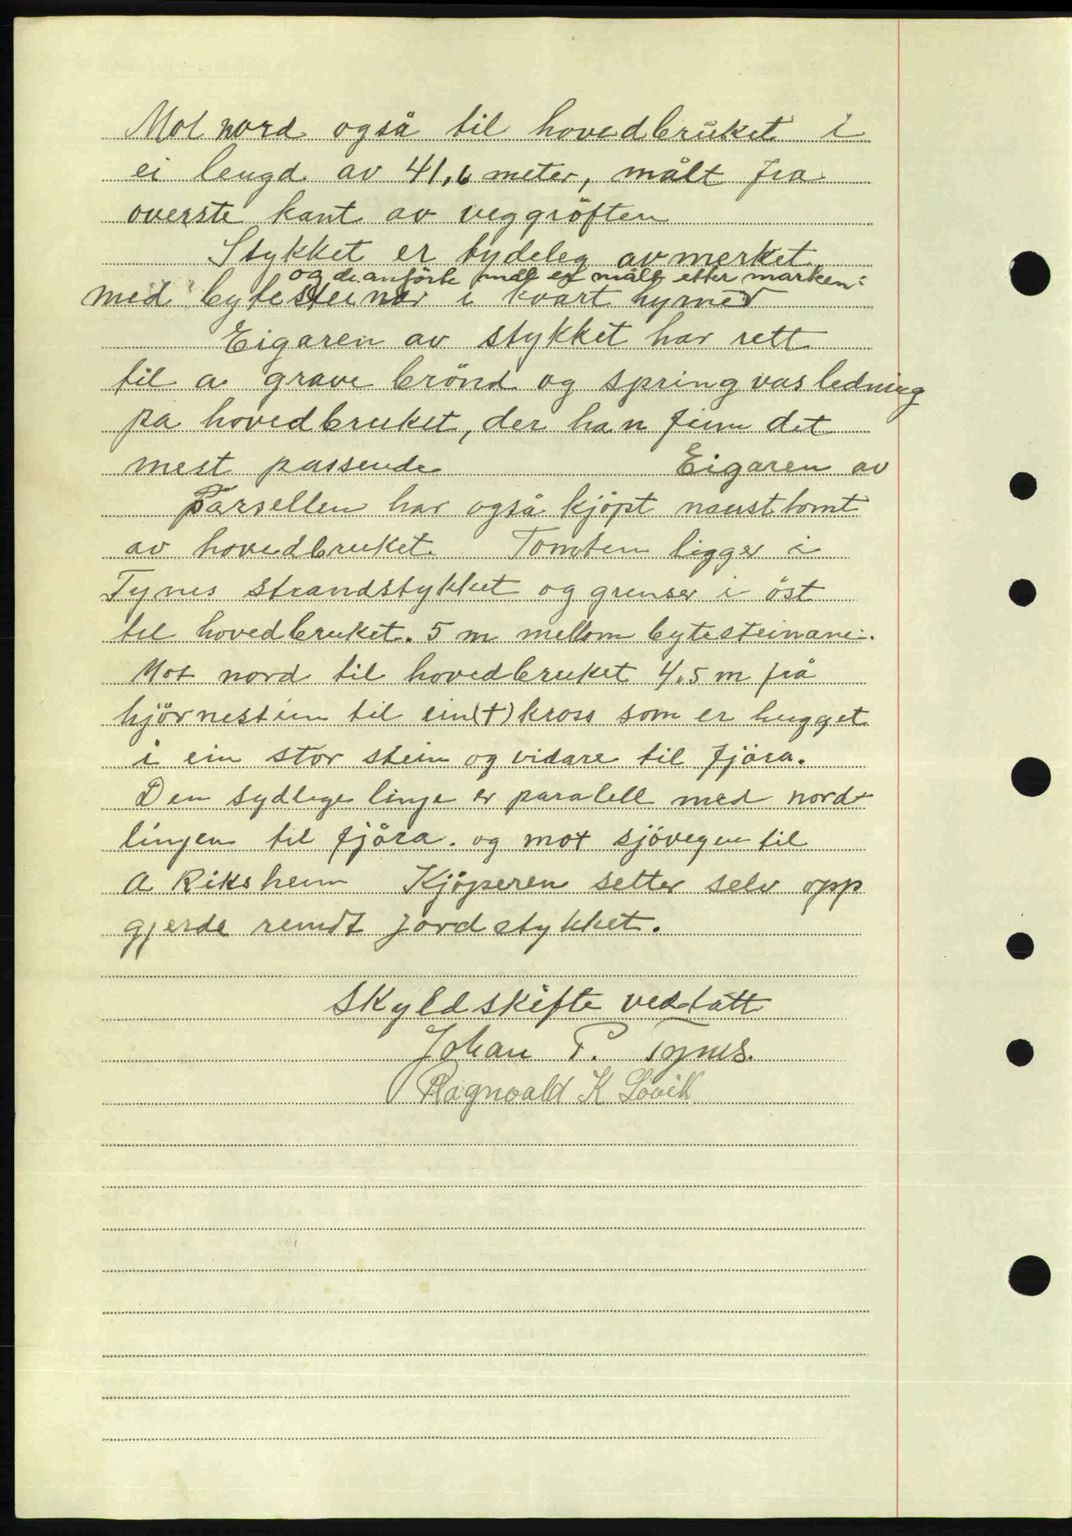 Mot nord også til hovedbruket i
ei lengd av 41,6 meter, målt fra
øverste kant av veggröften
Stykket er tydeleg avmerket
og de anförte mål er målt etter marken.
med bytesteinar i kvart hyrne
Eigaren av stykket har rett
til a grave brönd og springvasledning
pa hovedbruket, der han finn det
mest passende Eigaren av
Parsellen har også kjöpt nausttomt
av hovedbruket. Tomten ligger i
Tynes strandstykket og grenser i öst
til hovedbruket. 5 m mellom bytesteinane.
Mot nord til hovedbruket 4,5 m frå
hjörnestein til ein (†) kross som er hugget
i ein stor stein og vidare til fjöra.
Den sydlege linje er paralell med nord
linjen til fjåra. og mot sjövegen til
A Riksheim Kjöperen setter selv opp
gjerde rundt jordstykket.
Skyldskifte vedtatt
Johan P. Tynes.
Ragnvald K Lövik